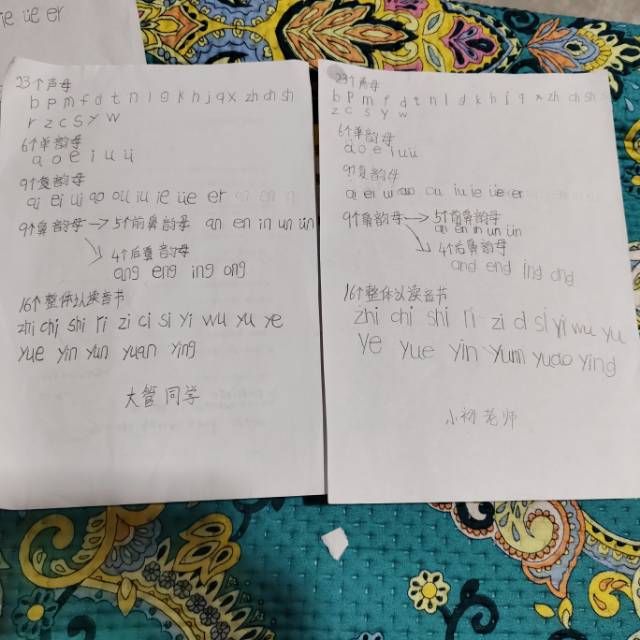 ie üe er
23个声母
b p m f d t n l g k h j q x zh ch sh
r z c s y w
6个单韵母
a o e i u ü
9个复韵母
ai ei ui ao ou iu ie üe er
9个鼻韵母→5个前鼻韵母 an en in un ün
4个后鼻韵母
ang eng ing ong
16个整体认读音节
zhi chi shi ri zi ci si yi wu yu ye
yue yin yun yuan ying
大管同学
23个声母
b p m f d t n l d k h j q x zh ch sh
z c s y w
6个单韵母
a o e i u ü
9个复韵母
ai ei ui ao ou iu ie üe er
9个鼻韵母→5个前鼻韵母
an en in un ün
4个后鼻韵母
and end ind ond
16个整体认读音节
zhi chi shi ri zi ci si yi wu yu
ye yue yin yum yuao yind
小杨老师